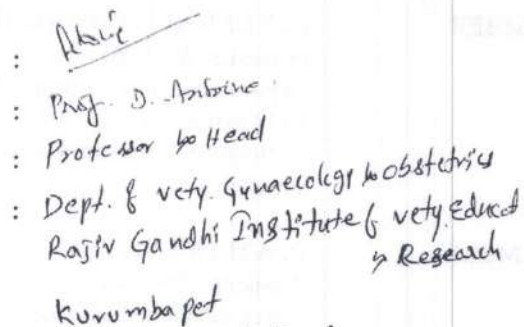 :
: Prof. D. Antoine.
: Professor & Head
: Dept. of vety. Gynaecology & Obstetrics
Rajiv Gandhi Institute of vety. Educat
& Research
Kurumbapet